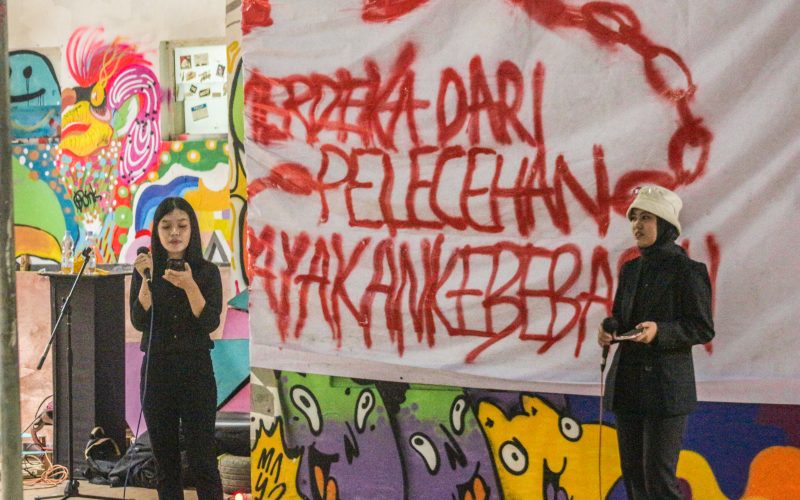 ERDEKA DARI
PELECEHAN
AYAKAN KEBEBA